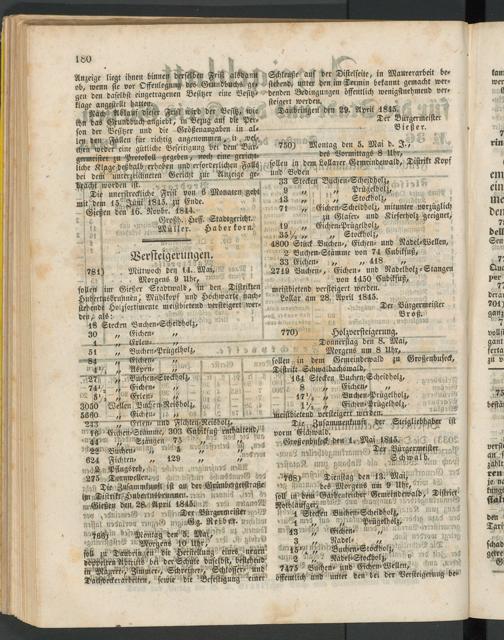 180
Anzeige liegt ihnen binnen derselben Frist alsdann
ob, wenn sie vor Offenlegung des Grundbuchs ge-
gen den daselbst eingetragenen Besitzer eine Besitz-
klage angestellt hatten.
Nach Ablauf dieser Frist wird der Besitz, wie
ihn das Grundbuch angiebt, in Bezug auf die Per-
son der Besitzer und die Größenangaben in al-
len den Fällen für richtig angenommen, in wel-
chen weder eine gütliche Beseitigung bei dem Bür-
germeister zu Protokoll gegeben, noch eine gericht-
liche Klage deshalb erhoben und erforderlichen Falls
bei dem unterzeichneten Gericht zur Anzeige ge-
bracht worden ist.
Die unerstreckliche Frist von 6 Monaten geht
mit dem 15. Juni 1845. zu Ende.
Gießen den 16. Novbr. 1844.
Großh. Hess. Stadtgericht.
Müller. Haberkorn.
Versteigerungen.
781) Mittwoch den 14. Mai,
Morgens 9 Uhr,
sollen im Gießer Stadtwald, in den Distrikten
Hubertusbrunnen, Mühlkopf und Hochwarte nach-
stehende Holzsortimente meistbietend versteigert wer-
den, als:
18 Stecken Buchen-Scheidholz,
30 „ Eichen- „
4 „ Erlen- „
51 „ Buchen-Prügelholz,
84 „ Eichen- „
4½ „ Aspen- „
27 „ Buchen-Stockholz,
74½ „ Eichen- „
5¼ „ Erlen- „
3050 Wellen Buchen-Reisholz,
5660 „ Eichen- „
243 „ Erlen- und Fichten-Reisholz,
16 Eichen-Stämme, 303 Cubikfuß enthaltend,
44 „ Stangen 75 „ „
22 Buchen- „ „ „
624 Fichten- „ 129 „ „
2 Pflugörhe,
275 Dornwellen.
Die Zusammenkunft ist an der Grünbergerstraße
im Distrikt Hubertusbrunnen.
Gießen den 28. April 1845.
Der Bürgermeister
Gg. Reiber.
766) Montag den 5. Mai,
Morgens 10 Uhr,
soll zu Daubringen die Herstellung eines neuen
doppelten Abtritts bei der Schule daselbst, bestehend
in Maurer-, Zimmer-, Schreiner-, Schlosser- und
Dachdeckerarbeiten, sowie die Befestigung einer
Schleuse auf der Distelseite, in Maurerarbeit be-
stehend, unter den im Termin bekannt gemacht wer-
denden Bedingungen öffentlich wenigstnehmend ver-
steigert werden.
Daubringen den 29. April 1845.
Der Bürgermeister
Bießer.
750) Montag den 5. Mai d. J.,
des Vormittags 8 Uhr,
sollen in dem Lollarer Gemeindewald, Distrikt Kopf
und Boden
33 Stecken Buchen-Scheidholz,
8 „ „ Prügelholz,
13 „ „ Stockholz,
71 „ Eichen-Scheidholz, mitunter vorzüglich
zu Glaser- und Kieferholz geeignet,
19 „ Eichen-Prügelholz,
35½ „ „ Stockholz,
4800 Stück Buchen-, Eichen- und Nadel-Wellen,
2 Buchen-Stämme von 74 Cubikfuß,
33 Eichen „ „ 418 „
2719 Buchen-, Eichen- und Nadelholz-Stangen
von 1450 Cubikfuß,
meistbietend versteigert werden.
Lollar am 28. April 1845.
Der Bürgermeister
770) Holzversteigerung.
Donnerstag den 8. Mai,
Morgens um 8 Uhr,
sollen in dem Gemeindewald zu Großenbuseck,
Distrikt Schwalbachswald,
164 Stecken Buchen-Scheidholz,
8 „ Eichen- „
17½ „ Buchen-Prügelholz,
1½ „ Eichen-Prügelholz,
meistbietend versteigert werden.
Die Zusammenkunft der Steigliebhaber ist
vorm Eichendorf.
Großenbuseck den 1. Mai 1845.
Der Bürgermeister
Schwalb.
768) Dienstag den 13. Mai,
des Morgens um 9 Uhr,
soll in dem Garbenteicher Gemeindewald, District
1 Stecken Buchen-Scheidholz,
4 „ „ Prügelholz,
13 „ Eichen- „
3 „ Nadel- „
15 „ Buchen-Stockholz,
„ Nadel-Stockholz,
7475 Buchen- und Eichen-Wellen,
öffentlich und unter den bei der Versteigerung be-